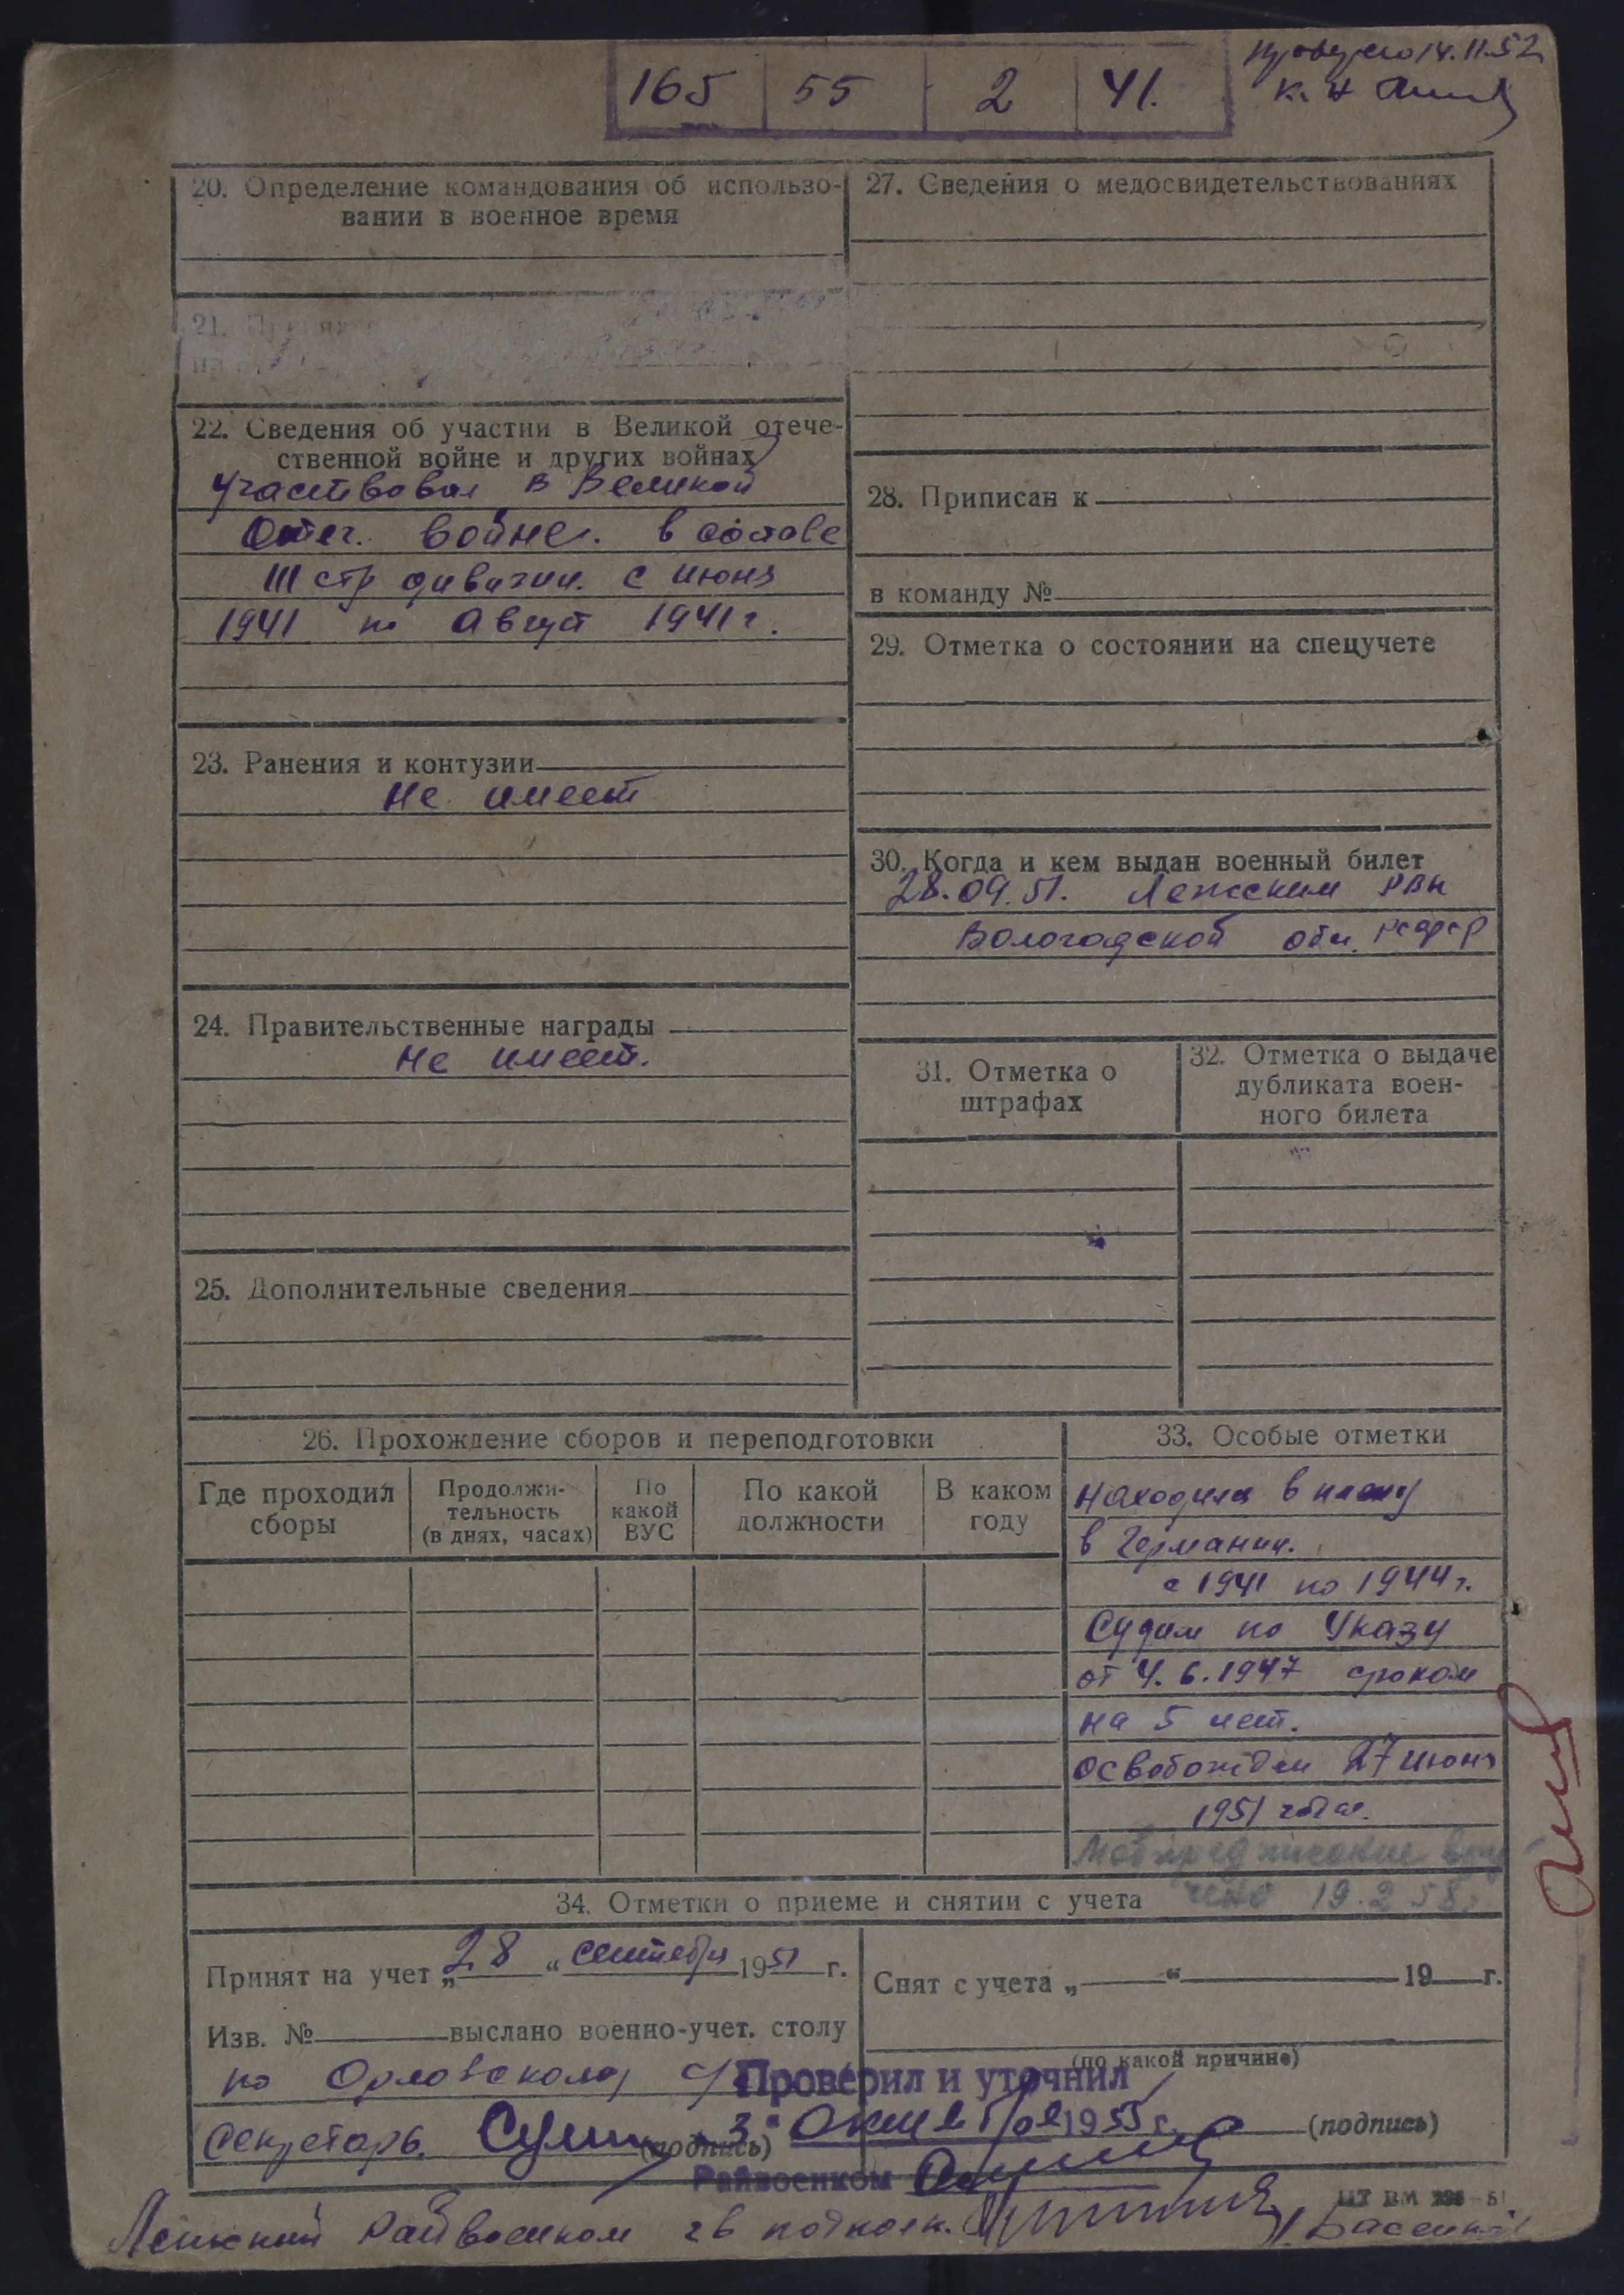 165 55 2 41.
14.11.52
20. Определение командования об использо-
вании в военное время
21.
22. Сведения об участии в Великой отече-
ственной войне и других войнах
Участвовал в Великой
Отеч. войне. в составе
111 стр дивизии. с июня
1941 по Август 1941 г.
23. Ранения и контузии
Не имеет
24. Правительственные награды
Не имеет.
25. Дополнительные сведения
27. Сведения о медосвидетельствованиях
28. Приписан к
в команду №
29. Отметка о состоянии на спецучете
30. Когда и кем выдан военный билет
28.09.51. Лежским РВК
Вологодской обл. РСФСР
31. Отметка о
штрафах
32. Отметка о выдаче
дубликата воен-
ного билета
26. Прохождение сборов и переподготовки
Где проходил
сборы
Продолжи-
тельность
(в днях, часах)
По
какой
ВУС
По какой
должности
В каком
году
33. Особые отметки
Находился в плену
в Германии.
с 1941 по 1944 г.
Судим по Указу
от 4.6.1947 сроком
на 5 лет.
освобожден 27 июня
1951 года.
Мобпредписание вру
чено 19.2.58г
34. Отметки о приеме и снятии с учета
Принят на учет „28“ сентября 1951 г.
Изв. № выслано военно-учет. столу
по Орловскому с/
секретарь. (подпись)
Снят с учета „ “ 19 г.
(по какой причине)
(подпись)
Проверил и уточнил
„3“ октября 1953 г.
Райвоенком
Лежский Райвоенком гв подполк.